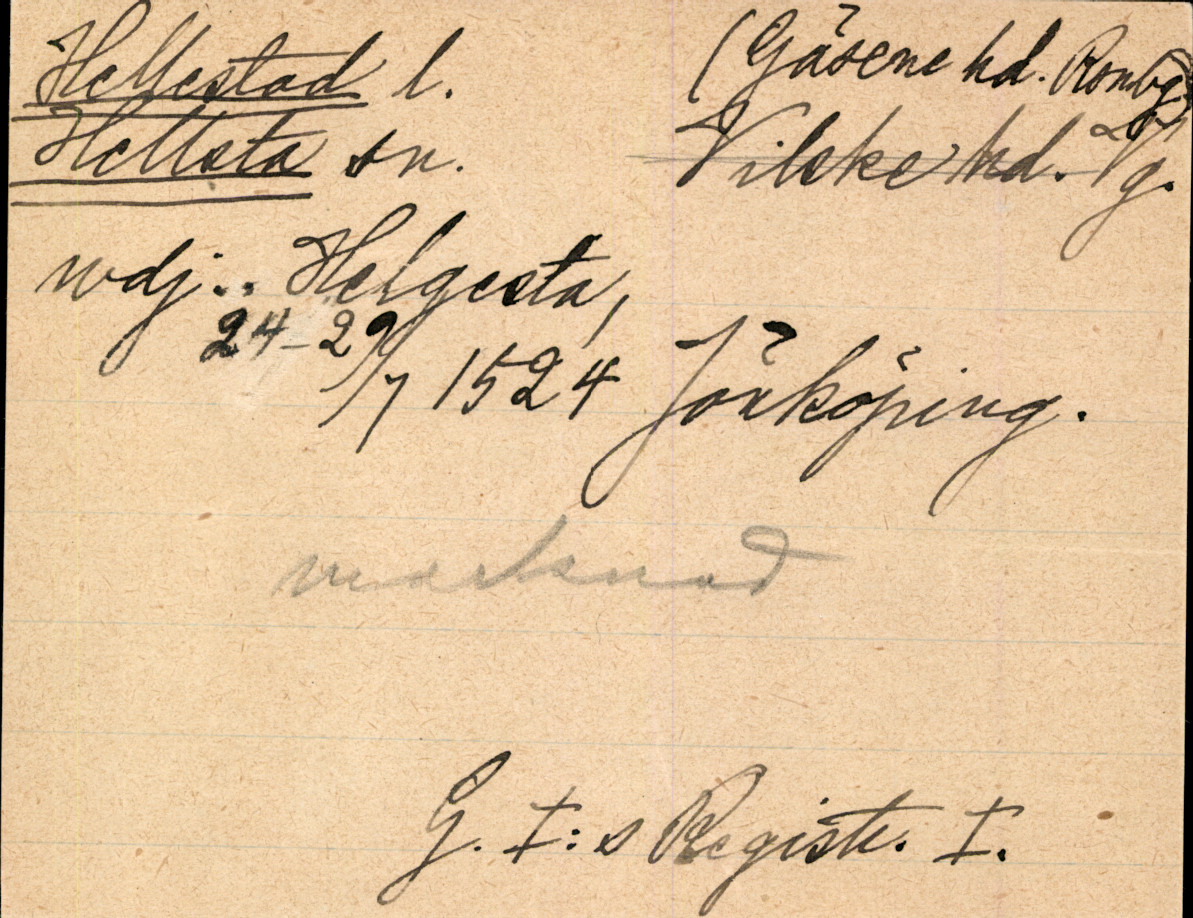 Hellestad l. (Gäsene hd. Älvsbg.
Hellsta sn. Vilske hd. Vg.
wdj.. Helgesta,
24–29/7 1524 Jönköping.
marknad
G. I:s Registr. I.